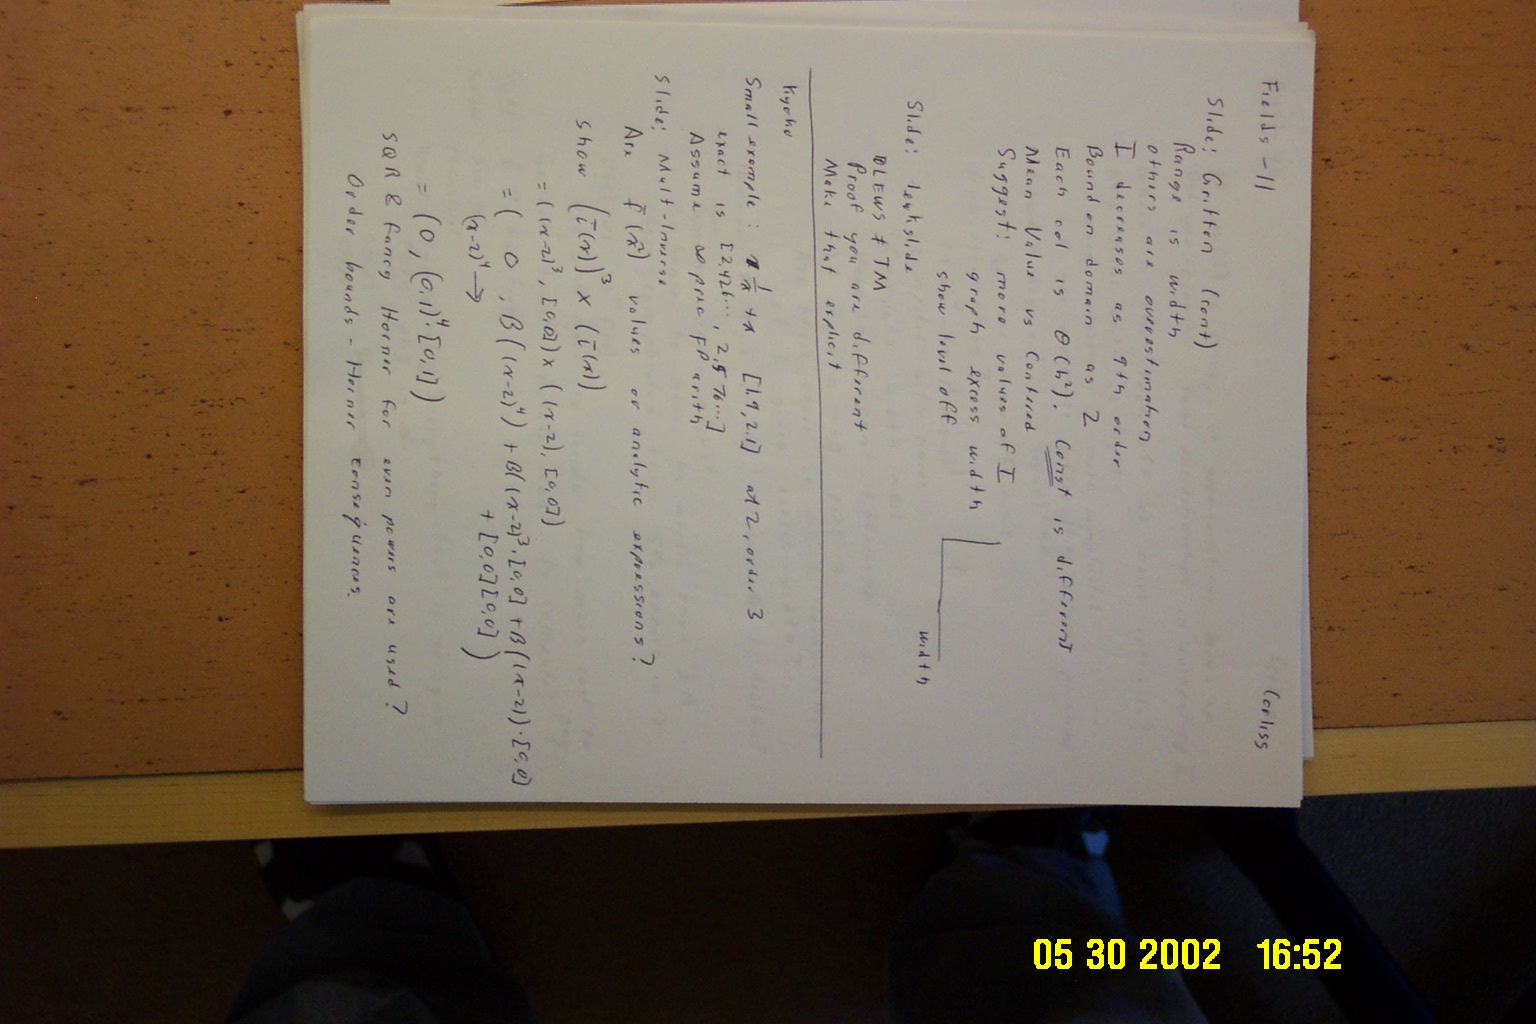 Fields - 11 Corliss
Slide: Gritten (cont)
Range is width
others are overestimation
I decreases as 9th order
Bound on domain as 2
Each col is θ(h²). Const is different
Mean Value vs Centered
Suggest: more values of I
graph excess width
show level off
width
Slide:
BLEWS ≠ TM
Proof you are different
Make that explicit
Kyoko
Small example: 1/x + x [1.9, 2.1] at 2, order 3
exact is [2.426..., 2.576...]
Assume ∞ prec FP arith
Slide: Mult-Inverse
Are f̄(x²) values or analytic expressions?
Show (ī(x))³ × (ī(x))
= ((x-2)³, [0,0]) × ((x-2), [0,0])
= ( 0 , B((x-2)⁴) + B((x-2)³·[0,0] + B((x-2))·[0,0]
(x-2)⁴ → + [0,0][0,0] )
= (0, (0.1)⁴·[0,1])
SQR & fancy Horner for even powers are used?
Order bounds - Horner consequences.
05 30 2002 16:52